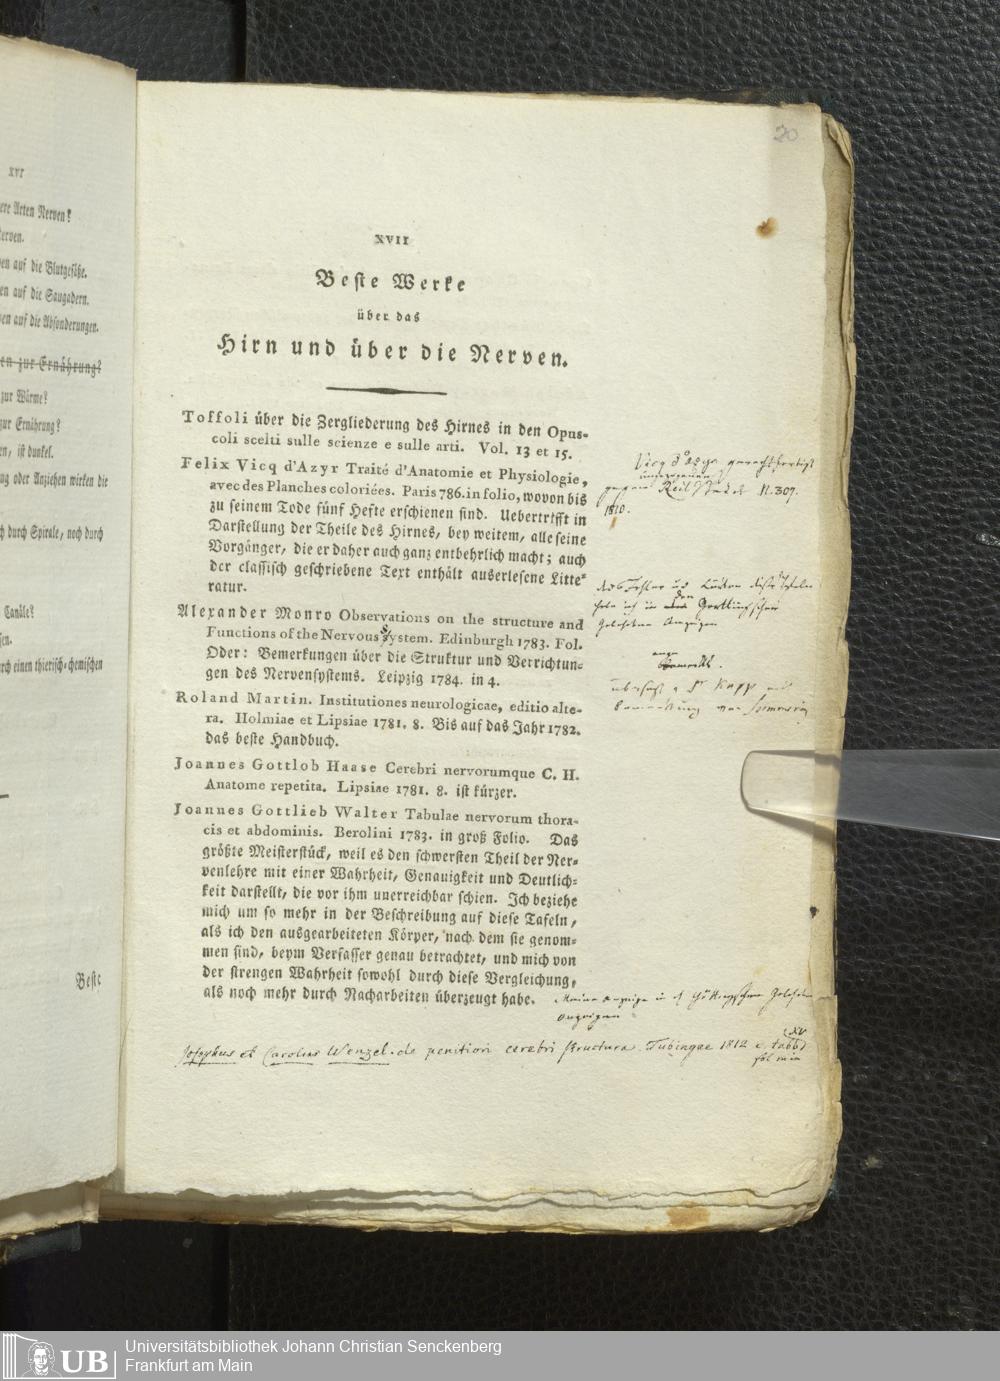 xvi
ere Arten Nerven?
erven.
en auf die Blutgefäße.
en auf die Saugadern.
en auf die Absonderungen.
en zur Ernährung?
zur Wärme?
zur Ernährung?
en, ist dunkel.
ng oder Anziehen wirken die
ch durch Spirale, noch durch
Canäle?
sen.
rch einen thierisch-chemischen
Beste
20
XVII
Beste Werke
über das
Hirn und über die Nerven.
Toffoli über die Zergliederung des Hirnes in den Opus-
coli scelti sulle scienze e sulle arti. Vol. 13 et 15.
Felix Vicq d'Azyr Traité d'Anatomie et Physiologie,
avec des Planches coloriées. Paris 786. in folio, wovon bis
zu seinem Tode fünf Hefte erschienen sind. Uebertrifft in
Darstellung der Theile des Hirnes, bey weitem, alle seine
Vorgänger, die er daher auch ganz entbehrlich macht; auch
der classisch geschriebene Text enthält auserlesene Litte-
ratur.
Alexander Monro Observations on the structure and
Functions of the Nervous System. Edinburgh 1783. Fol.
Oder: Bemerkungen über die Struktur und Verrichtun-
gen des Nervensystems. Leipzig 1784. in 4.
Roland Martin. Institutiones neurologicae, editio alte-
ra. Holmiae et Lipsiae 1781. 8. Bis auf das Jahr 1782.
das beste Handbuch.
Joannes Gottlob Haase Cerebri nervorumque C. H.
Anatome repetita. Lipsiae 1781. 8. ist kürzer.
Joannes Gottlieb Walter Tabulae nervorum thora-
cis et abdominis. Berolini 1783. in groß Folio. Das
größte Meisterstück, weil es den schwersten Theil der Ner-
venlehre mit einer Wahrheit, Genauigkeit und Deutlich-
keit darstellt, die vor ihm unerreichbar schien. Ich beziehe
mich um so mehr in der Beschreibung auf diese Tafeln,
als ich den ausgearbeiteten Körper, nach dem sie genom-
men sind, beym Verfasser genau betrachtet, und mich von
der strengen Wahrheit sowohl durch diese Vergleichung,
als noch mehr durch Nacharbeiten überzeugt habe.
Vicq d'azyr gerechtfertigt
gegen Reil N. 307.
1810.
die Fehler und Lücken dieser Tafeln
habe ich in den Goettingschen
Gelehrten Anzeigen
angemerkt.
Meine Anzeige in d Göttingschen Gelehrten
Anzeigen
Josephus et Carolus Wenzel. de penitiori cerebri structura. Tubingae 1812 c. tabb XV
fol min
Universitätsbibliothek Johann Christian Senckenberg
Frankfurt am Main
UB